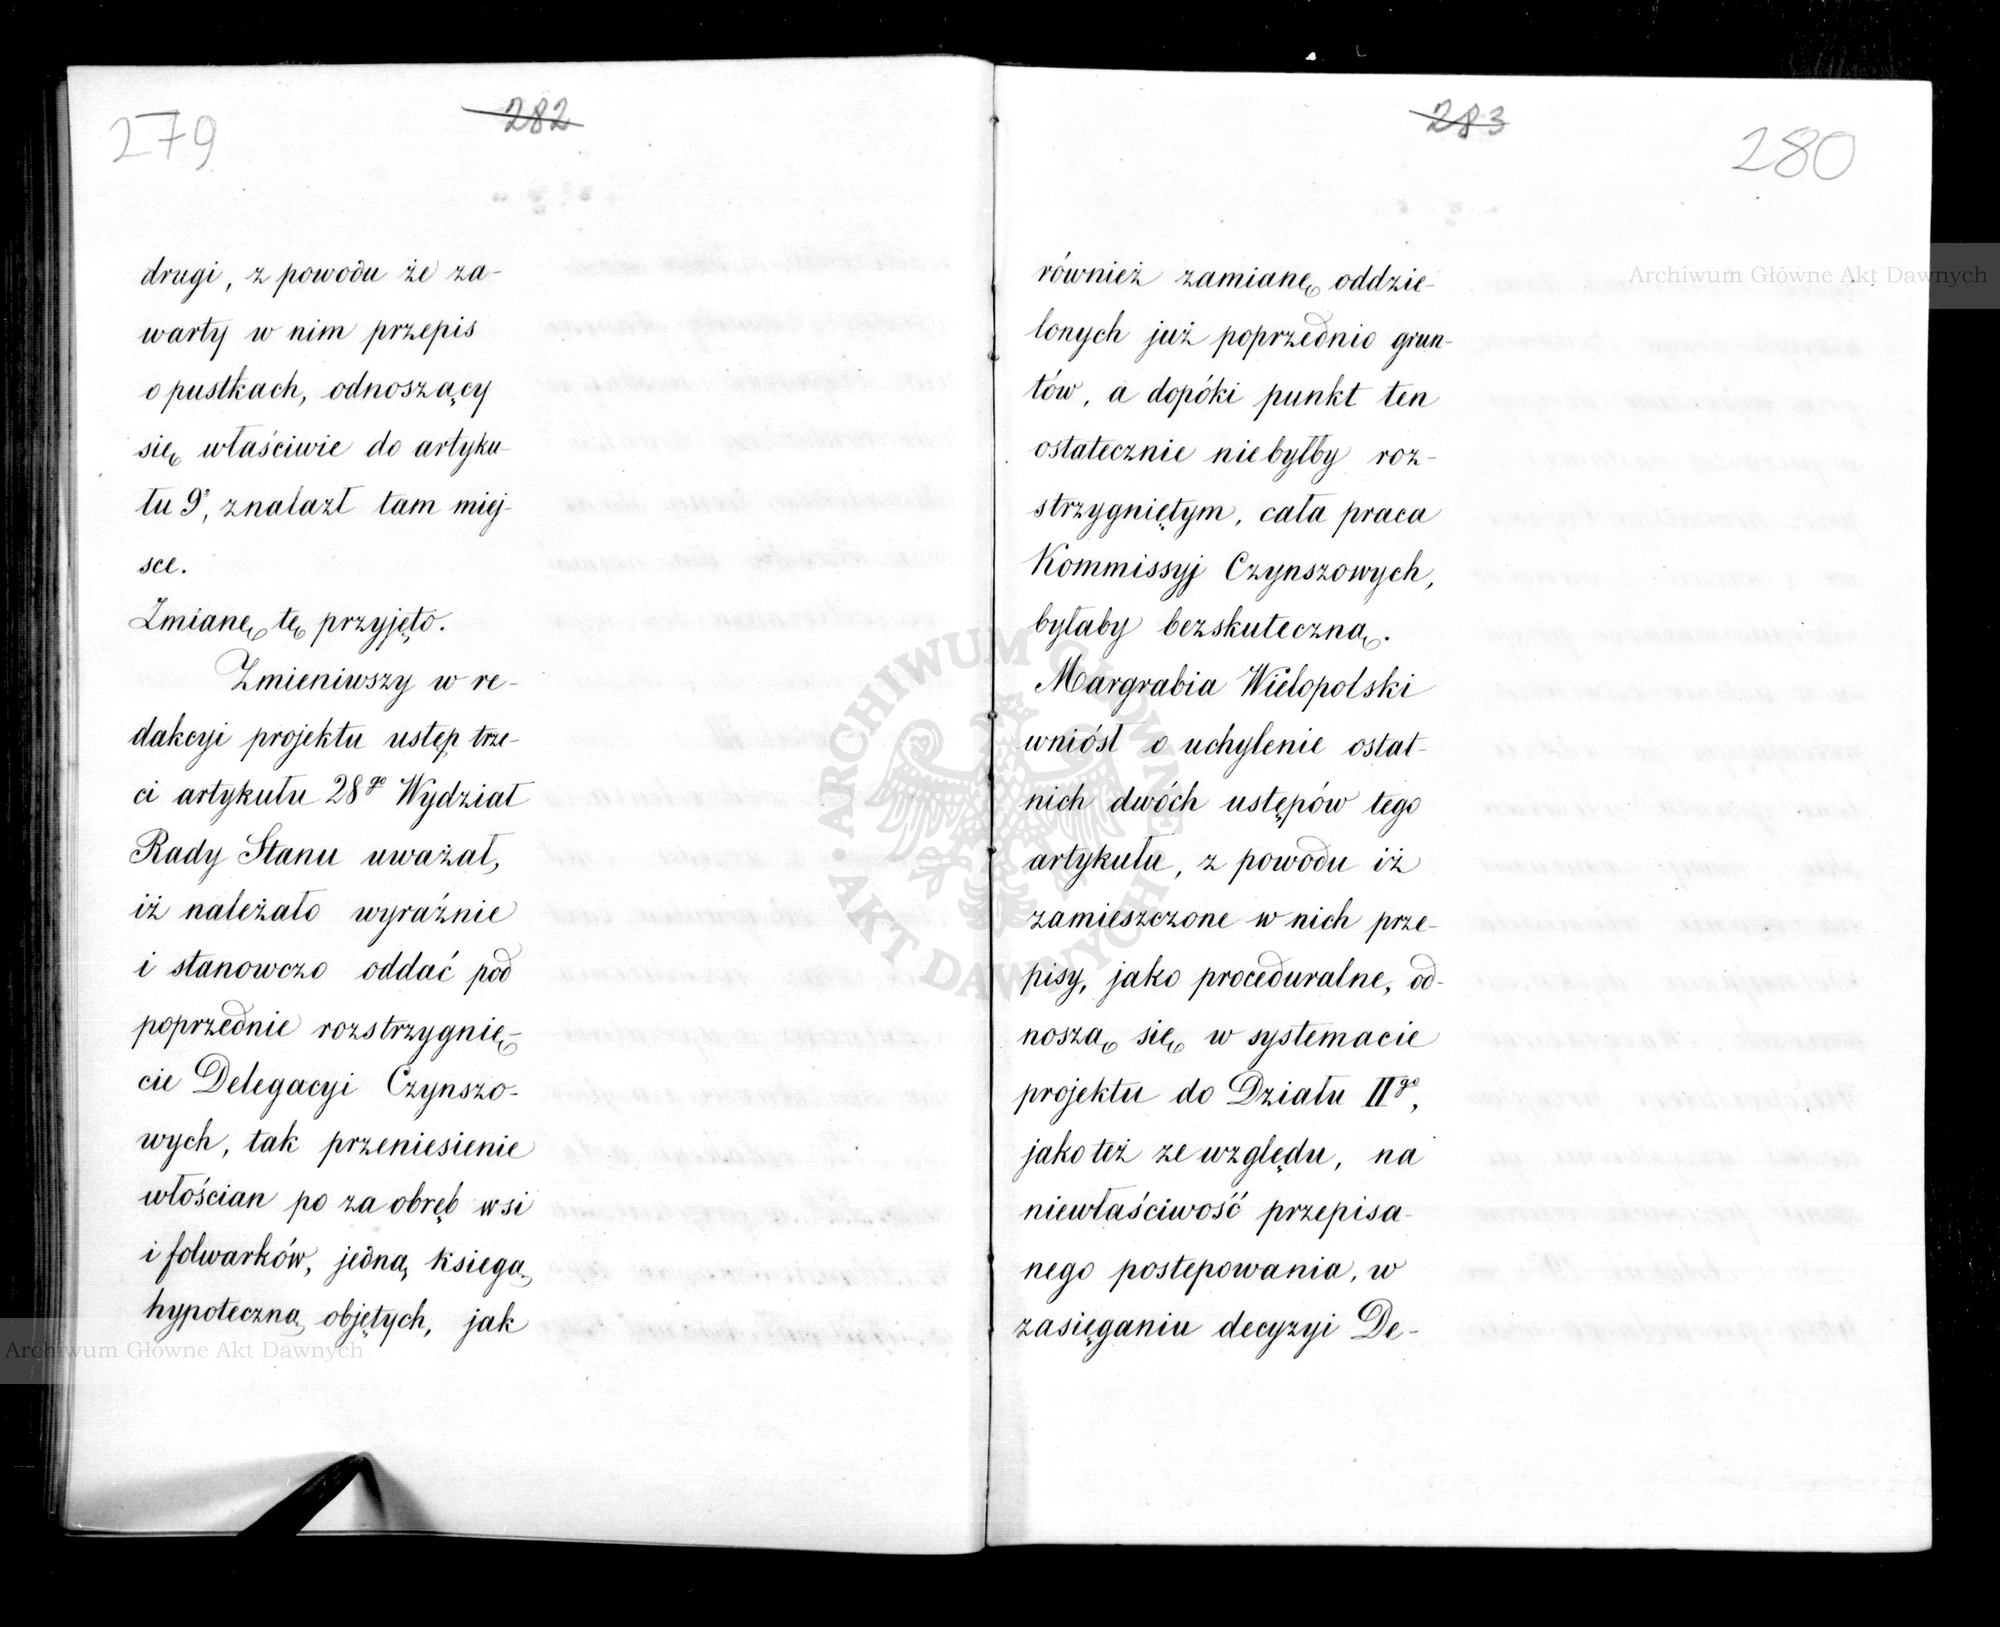 279
282
drugi, z powodu że za-
warty w nim przepis
o pustkach, odnoszący
się właściwie do artyku-
łu 9º, znalazł tam miej-
sce.
Zmianę tę przyjęto.
Zmieniwszy w re-
dakcyi projektu ustęp trze-
ci artykułu 28go Wydział
Rady Stanu uważał,
iż należało wyraźnie
i stanowczo oddać pod
poprzednie rozstrzygnię-
cie Delegacyi Czynszo-
wych, tak przeniesienie
włościan po za obręb wsi
i folwarków, jedną księgą
hypoteczną objętych, jak
283
280
również zamianę oddzie-
lonych już poprzednio grun-
tów, a dopóki punkt ten
ostatecznie niebyłby roz-
strzygniętym, cała praca
Kommissyj Czynszowych,
byłaby bezskuteczną.
Margrabia Wielopolski
wniósł o uchylenie ostat-
nich dwóch ustępów tego
artykułu, z powodu iż
zamieszczone w nich prze-
pisy, jako proceduralne, od-
noszą się w systemacie
projektu do Działu IIgo,
jako też ze względu, na
niewłaściwość przepisa-
nego postepowania, w
zasięganiu decyzyi De-
Archiwum Główne Akt Dawnych
Archiwum Główne Akt Dawnych
ARCHIWUM GŁÓWNE • AKT DAWNYCH •